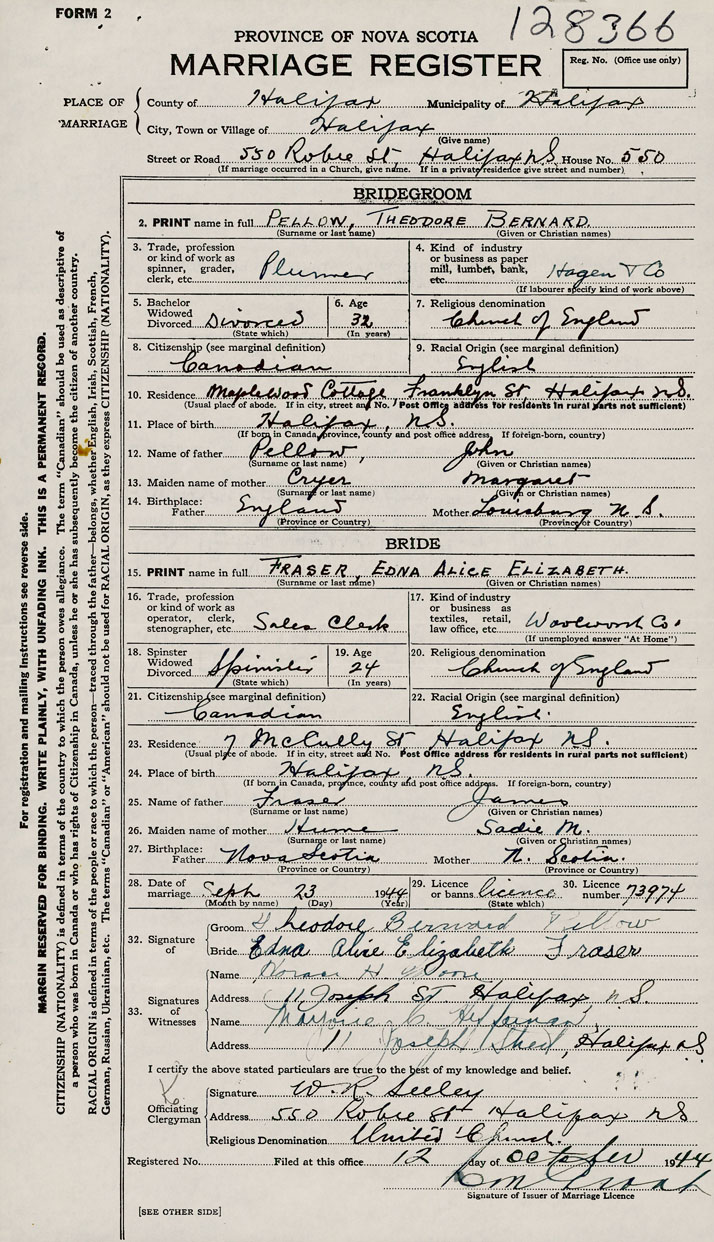 FORM 2
128366
PROVINCE OF NOVA SCOTIA
MARRIAGE REGISTER
Reg. No. (Office use only)
PLACE OF MARRIAGE
County of Halifax Municipality of Halifax
City, Town or Village of Halifax
(Give name)
Street or Road 550 Robie St, Halifax N.S. House No. 550
(If marriage occurred in a Church, give name. If in a private residence give street and number)
BRIDEGROOM
2. PRINT name in full PELLOW, THEODORE BERNARD.
(Surname or last name) (Given or Christian names)
3. Trade, profession or kind of work as spinner, grader, clerk, etc. Plumer
4. Kind of industry or business as paper mill, lumber, bank, etc. Hagen & Co
(If labourer specify kind of work above)
5. Bachelor Widowed Divorced Divorced
(State which)
6. Age 32
(In years)
7. Religious denomination
Church of England
8. Citizenship (see marginal definition)
Canadian
9. Racial Origin (see marginal definition)
English
10. Residence Maplewood Cottage, Franklyn St, Halifax N.S.
(Usual place of abode. If in city, street and No. Post Office address for residents in rural parts not sufficient)
11. Place of birth Halifax, N.S.
(If born in Canada, province, county and post office address. If foreign-born, country)
12. Name of father Pellow, John
(Surname or last name) (Given or Christian names)
13. Maiden name of mother Cryer Margaret
(Surname or last name) (Given or Christian names)
14. Birthplace: Father England Mother Louisburg N S.
(Province or Country) (Province or Country)
BRIDE
15. PRINT name in full FRASER, EDNA ALICE ELIZABETH.
(Surname or last name) (Given or Christian names)
16. Trade, profession or kind of work as operator, clerk, stenographer, etc. Sales Clerk
17. Kind of industry or business as textiles, retail, law office, etc. Woolworth Co.
(If unemployed answer "At Home")
18. Spinster Widowed Divorced Spinister
(State which)
19. Age 24
(In years)
20. Religious denomination
Church of England
21. Citizenship (see marginal definition)
Canadian
22. Racial Origin (see marginal definition)
English.
23. Residence 7 McCully St Halifax N.S.
(Usual place of abode. If in city, street and No. Post Office address for residents in rural parts not sufficient)
24. Place of birth Halifax, N.S.
(If born in Canada, province, county and post office address. If foreign-born, country)
25. Name of father Fraser James
(Surname or last name) (Given or Christian names)
26. Maiden name of mother Hume Sadie M.
(Surname or last name) (Given or Christian names)
27. Birthplace: Father Nova Scotia Mother N. Scotia.
(Province or Country) (Province or Country)
28. Date of marriage Seph 23 1944
(Month by name) (Day) (Year)
29. Licence or banns licence
(State which)
30. Licence number 73974
32. Signature of
Groom Theodore Bernard Pellow
Bride Edna Alice Elizabeth Fraser
33. Signatures of Witnesses
Name H. Moore
Address 11 Joseph St Halifax, N.S.
Name Marjorie C.
Address 11 Joseph Street, Halifax N.S
I certify the above stated particulars are true to the best of my knowledge and belief.
Officiating Clergyman
Signature W. R. Seeley
Address 550 Robie St Halifax NS
Religious Denomination United Church.
Registered No. Filed at this office 12 day of October 1944
Signature of Issuer of Marriage Licence
[SEE OTHER SIDE]
For registration and mailing instructions see reverse side.
MARGIN RESERVED FOR BINDING. WRITE PLAINLY, WITH UNFADING INK. THIS IS A PERMANENT RECORD.
CITIZENSHIP (NATIONALITY) is defined in terms of the country to which the person owes allegiance. The term "Canadian" should be used as descriptive of
a person who was born in Canada or who has rights of Citizenship in Canada, unless he or she has subsequently become the citizen of another country.
RACIAL ORIGIN is defined in terms of the people or race to which the person—traced through the father—belongs, whether English, Irish, Scottish, French,
German, Russian, Ukrainian, etc. The terms "Canadian" or "American" should not be used for RACIAL ORIGIN, as they express CITIZENSHIP (NATIONALITY).